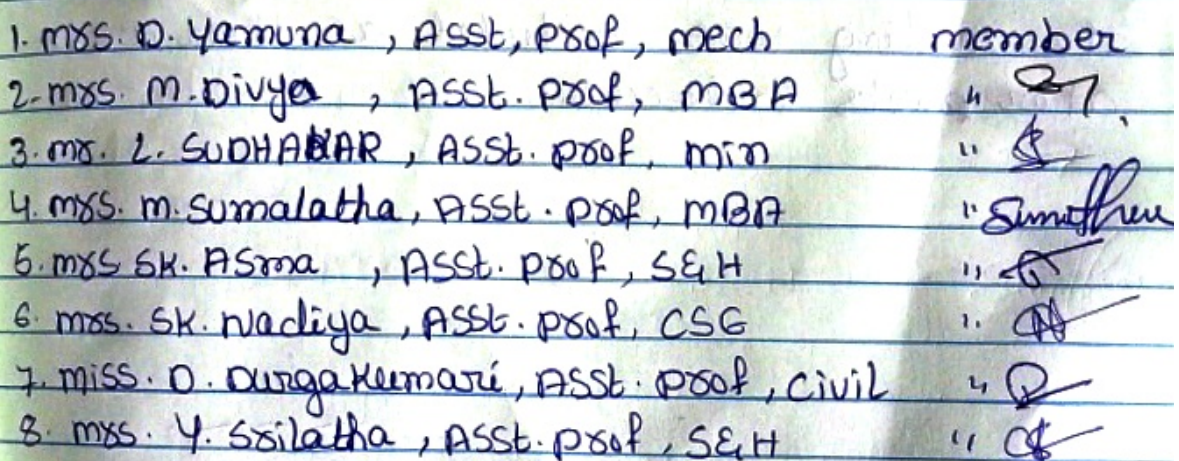 1. mrs. D. Yamuna , Asst, prof, mech member
2. mrs. M. Divya , Asst. prof, MBA "
3. mr. L. SUDHAKAR , Asst. prof, min "
4. mrs. m. sumalatha, Asst. prof, MBA "
5. mrs SK. ASma , Asst. prof, S&H "
6. mrs. SK. Nadiya , Asst. prof, CSE "
7. miss. D. DurgaKumari, Asst. prof, civil "
8. mrs. Y. Srilatha , Asst. prof, S&H "